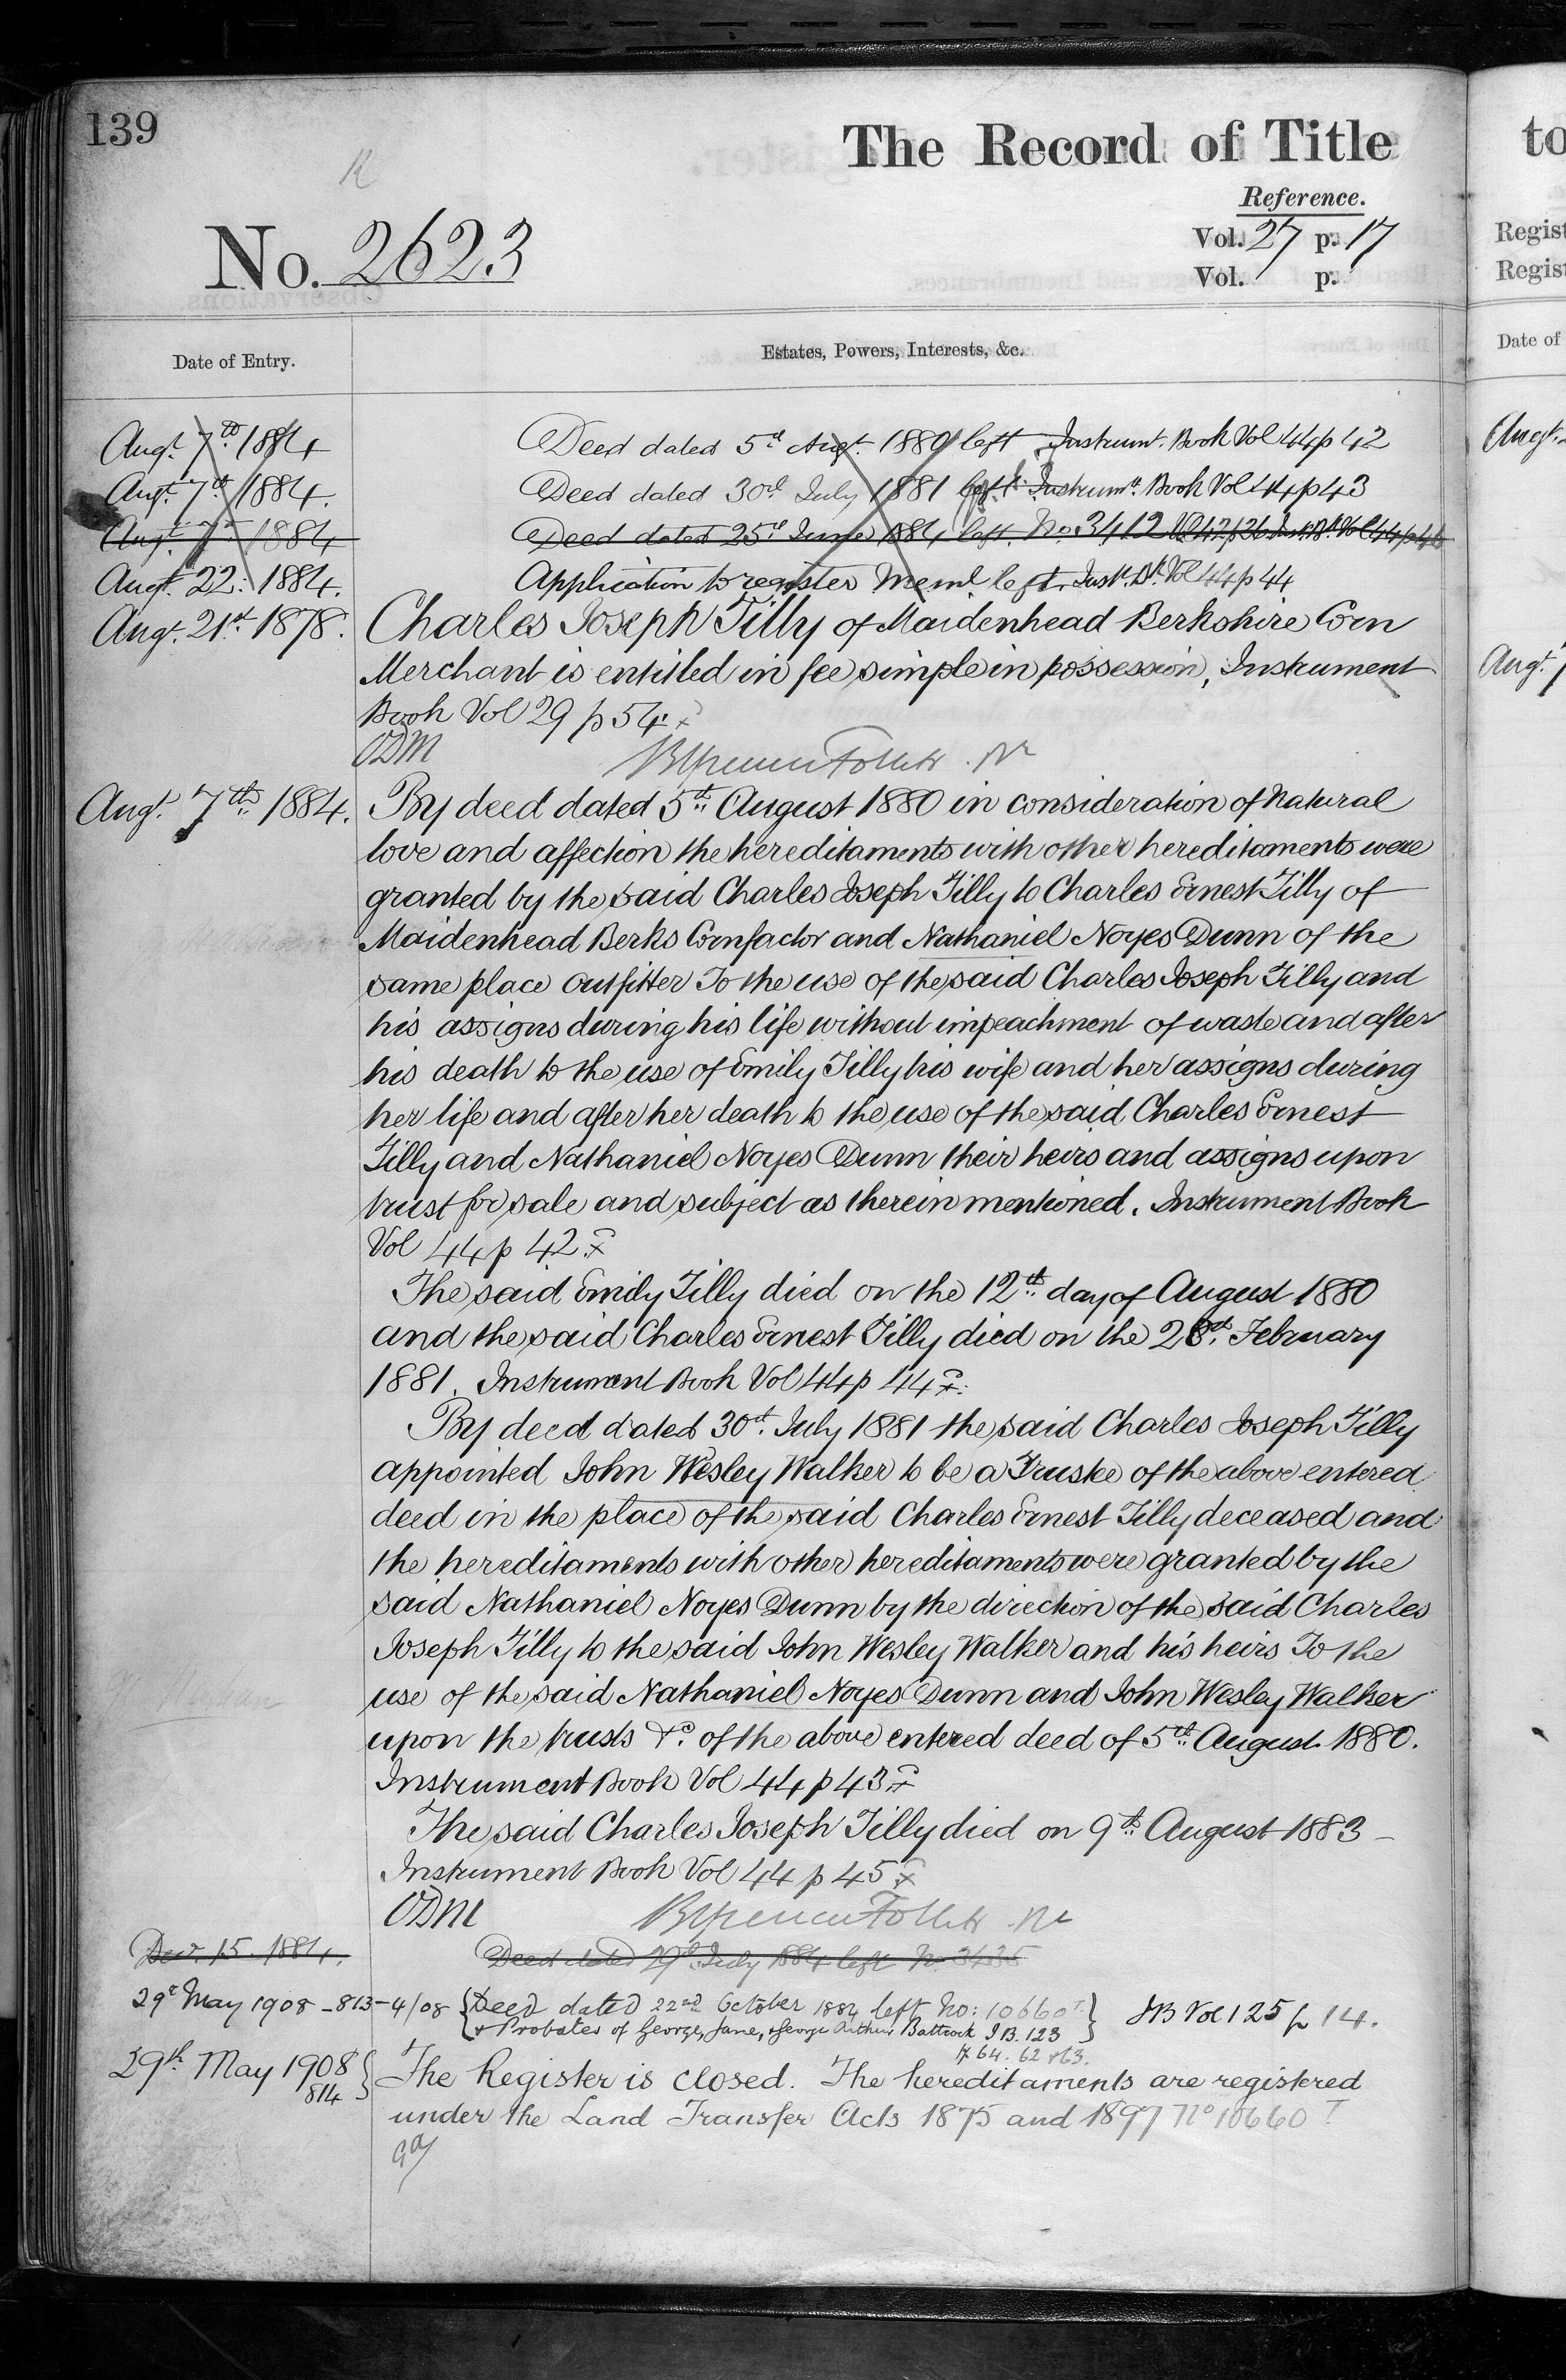 139
R
The Record of Title
Reference.
No. 2623
Vol. 27 p. 17
Vol. p.
Date of Entry.
Estates, Powers, Interests, &c.
Augt. 7th 1884 Deed dated 5th Augt. 1880 left Instrumt. Book Vol 44 p 42
Augt. 7th 1884. Deed dated 30th July 1881 left Instrumt. Book Vol 44 p 43
Augt. 7th 1884 Deed dated 25th June 1884 left. No. 3412
Augt. 22: 1884. Application to register Meml left. Inst. Bk. Vol 44 p 44
Augt. 21st 1878. Charles Joseph Tilly of Maidenhead Berkshire Corn
Merchant is entitled in fee simple in possession, Instrument
Book Vol 29 p 54
ODM
Augt. 7th 1884. By deed dated 5th August 1880 in consideration of Natural
love and affection the hereditaments with other hereditaments were
granted by the said Charles Joseph Tilly to Charles Ernest Tilly of
Maidenhead Berks Cornfactor and Nathaniel Noyes Dunn of the
same place Outfitter To the use of the said Charles Joseph Tilly and
his assigns during his life without impeachment of waste and after
his death to the use of Emily Tilly his wife and her assigns during
her life and after her death to the use of the said Charles Ernest
Tilly and Nathaniel Noyes Dunn their heirs and assigns upon
trust for sale and subject as therein mentioned. Instrument Book
Vol 44 p 42
The said Emily Tilly died on the 12th day of August 1880
and the said Charles Ernest Tilly died on the February
1881. Instrument Book Vol 44 p 44
By deed dated 30th July 1881 the said Charles Joseph Tilly
appointed John Wesley Walker to be a Trustee of the above entered
deed in the place of the said Charles Ernest Tilly deceased and
the hereditaments with other hereditaments were granted by the
said Nathaniel Noyes Dunn by the direction of the said Charles
Joseph Tilly to the said John Wesley Walker and his heirs To the
use of the said Nathaniel Noyes Dunn and John Wesley Walker
upon the trusts &c. of the above entered deed of 5th August 1880.
Instrument Book Vol 44 p 43
The said Charles Joseph Tilly died on 9th August 1883 –
Instrument Book Vol 44 p 45
ODM
Decr. 15. 1884. Deed dated 29th July 1884 left No. 3435
29th May 1908 – 813–4/08 Deed dated 22nd October 1884 left No: 10660 T. JB Vol 125 p 14.
& Probates of George, Jane, & George Arthur Battcock I B. 123
p 64. 62 & 63.
29th May 1908 The Register is closed. The hereditaments are registered
814
under the Land Transfer Acts 1875 and 1897 No 10660 T
to
Regist
Regist
Date of
Augt.
Augt. 7